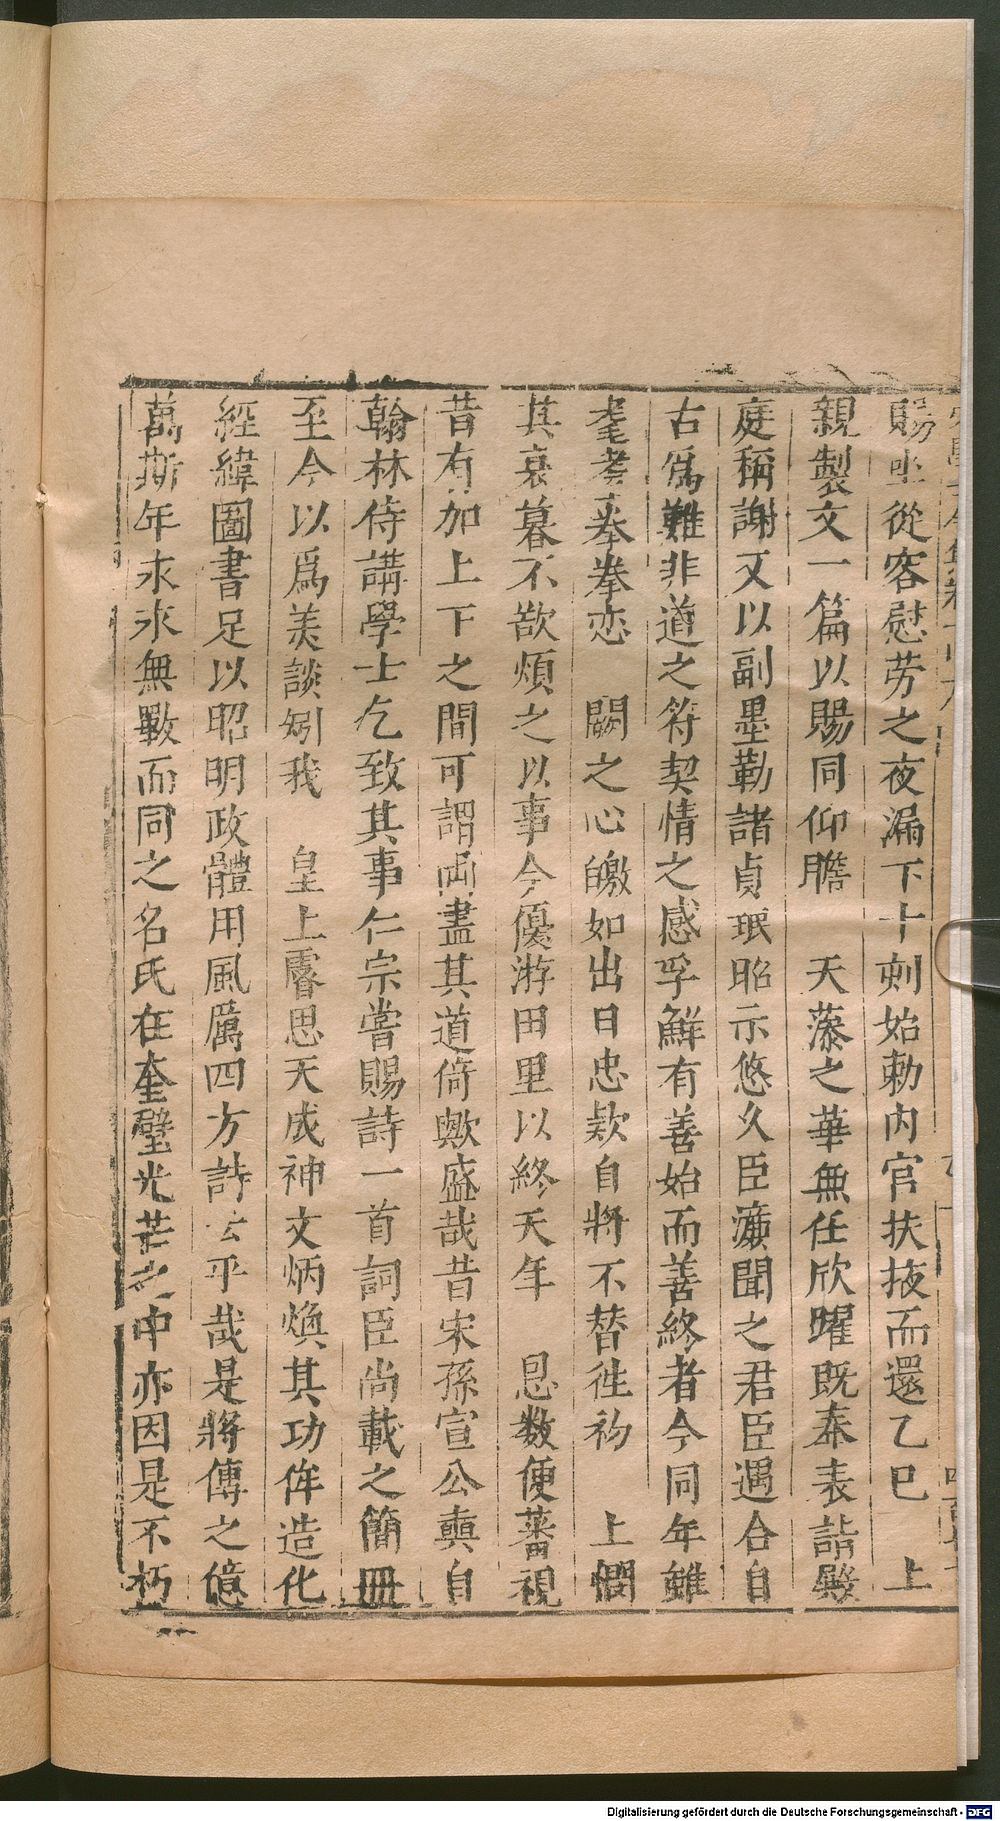 賜坐從容慰劳之夜漏下十刻始勅内官扶掖而還乙巳　上
親製文一篇以賜同仰瞻　天藻之華無任欣躍既奉表詣殿
庭稱謝又以副墨勒諸貞珉昭示悠久臣濂聞之君臣遇合自
古爲難非道之符契情之感孚鮮有善始而善終者今同年雖
耄耋拳拳恋　闕之心皦如出日忠欵自將不替徃初　上憫
其衰暮不欲煩之以事令優游田里以終天年　恩数便蕃視
昔有加上下之間可謂両盡其道倚歟盛哉昔宋孫宣公奭自
翰林侍講學士乞致其事仁宗嘗賜詩一首詞臣尚載之簡冊
至今以爲美談矧我　皇上睿思天成神文炳煥其功侔造化
經緯圖書足以昭明政體用風厲四方詩云乎哉是將傳之億
萬斯年永永無斁而同之名氏在奎璧光芒之中亦因是不朽
Digitalisierung gefördert durch die Deutsche Forschungsgemeinschaft - DFG